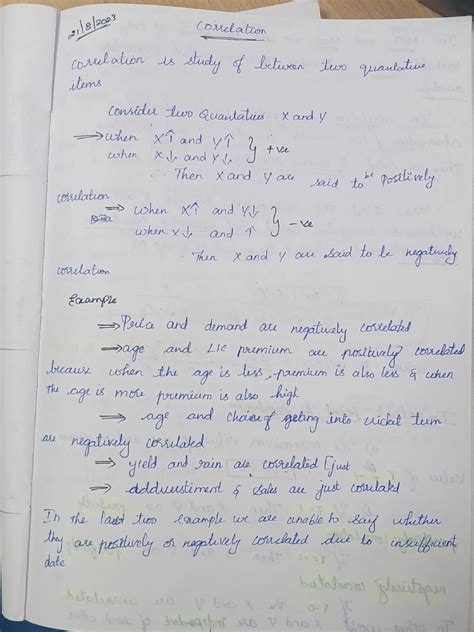 21/8/2023
Correlation
Correlation is study of between two quantative
items
Consider two Quantaties X and Y
⟹ when X↑ and Y↑ } +ve
when X↓ and Y↓
∴ Then X and Y are said to be Positively
correlation
⟹ when X↑ and Y↓ } -ve
when X↓ and ↑
Then X and Y are said to be negatively
correlation
Example
⟹ Price and demand are negatively correlated
⟹ age and LIC premium are positively correlated
because when the age is less, premium is also less & when
the age is more premium is also high
⟹ age and choice of geting into cricket team
are negatively correlated
⟹ yield and rain are correlated [just
⟹ addverstiment & sales are just correlated
In the last two example we are unable to say whether
they are positively or negatively correlated due to insufficient
date